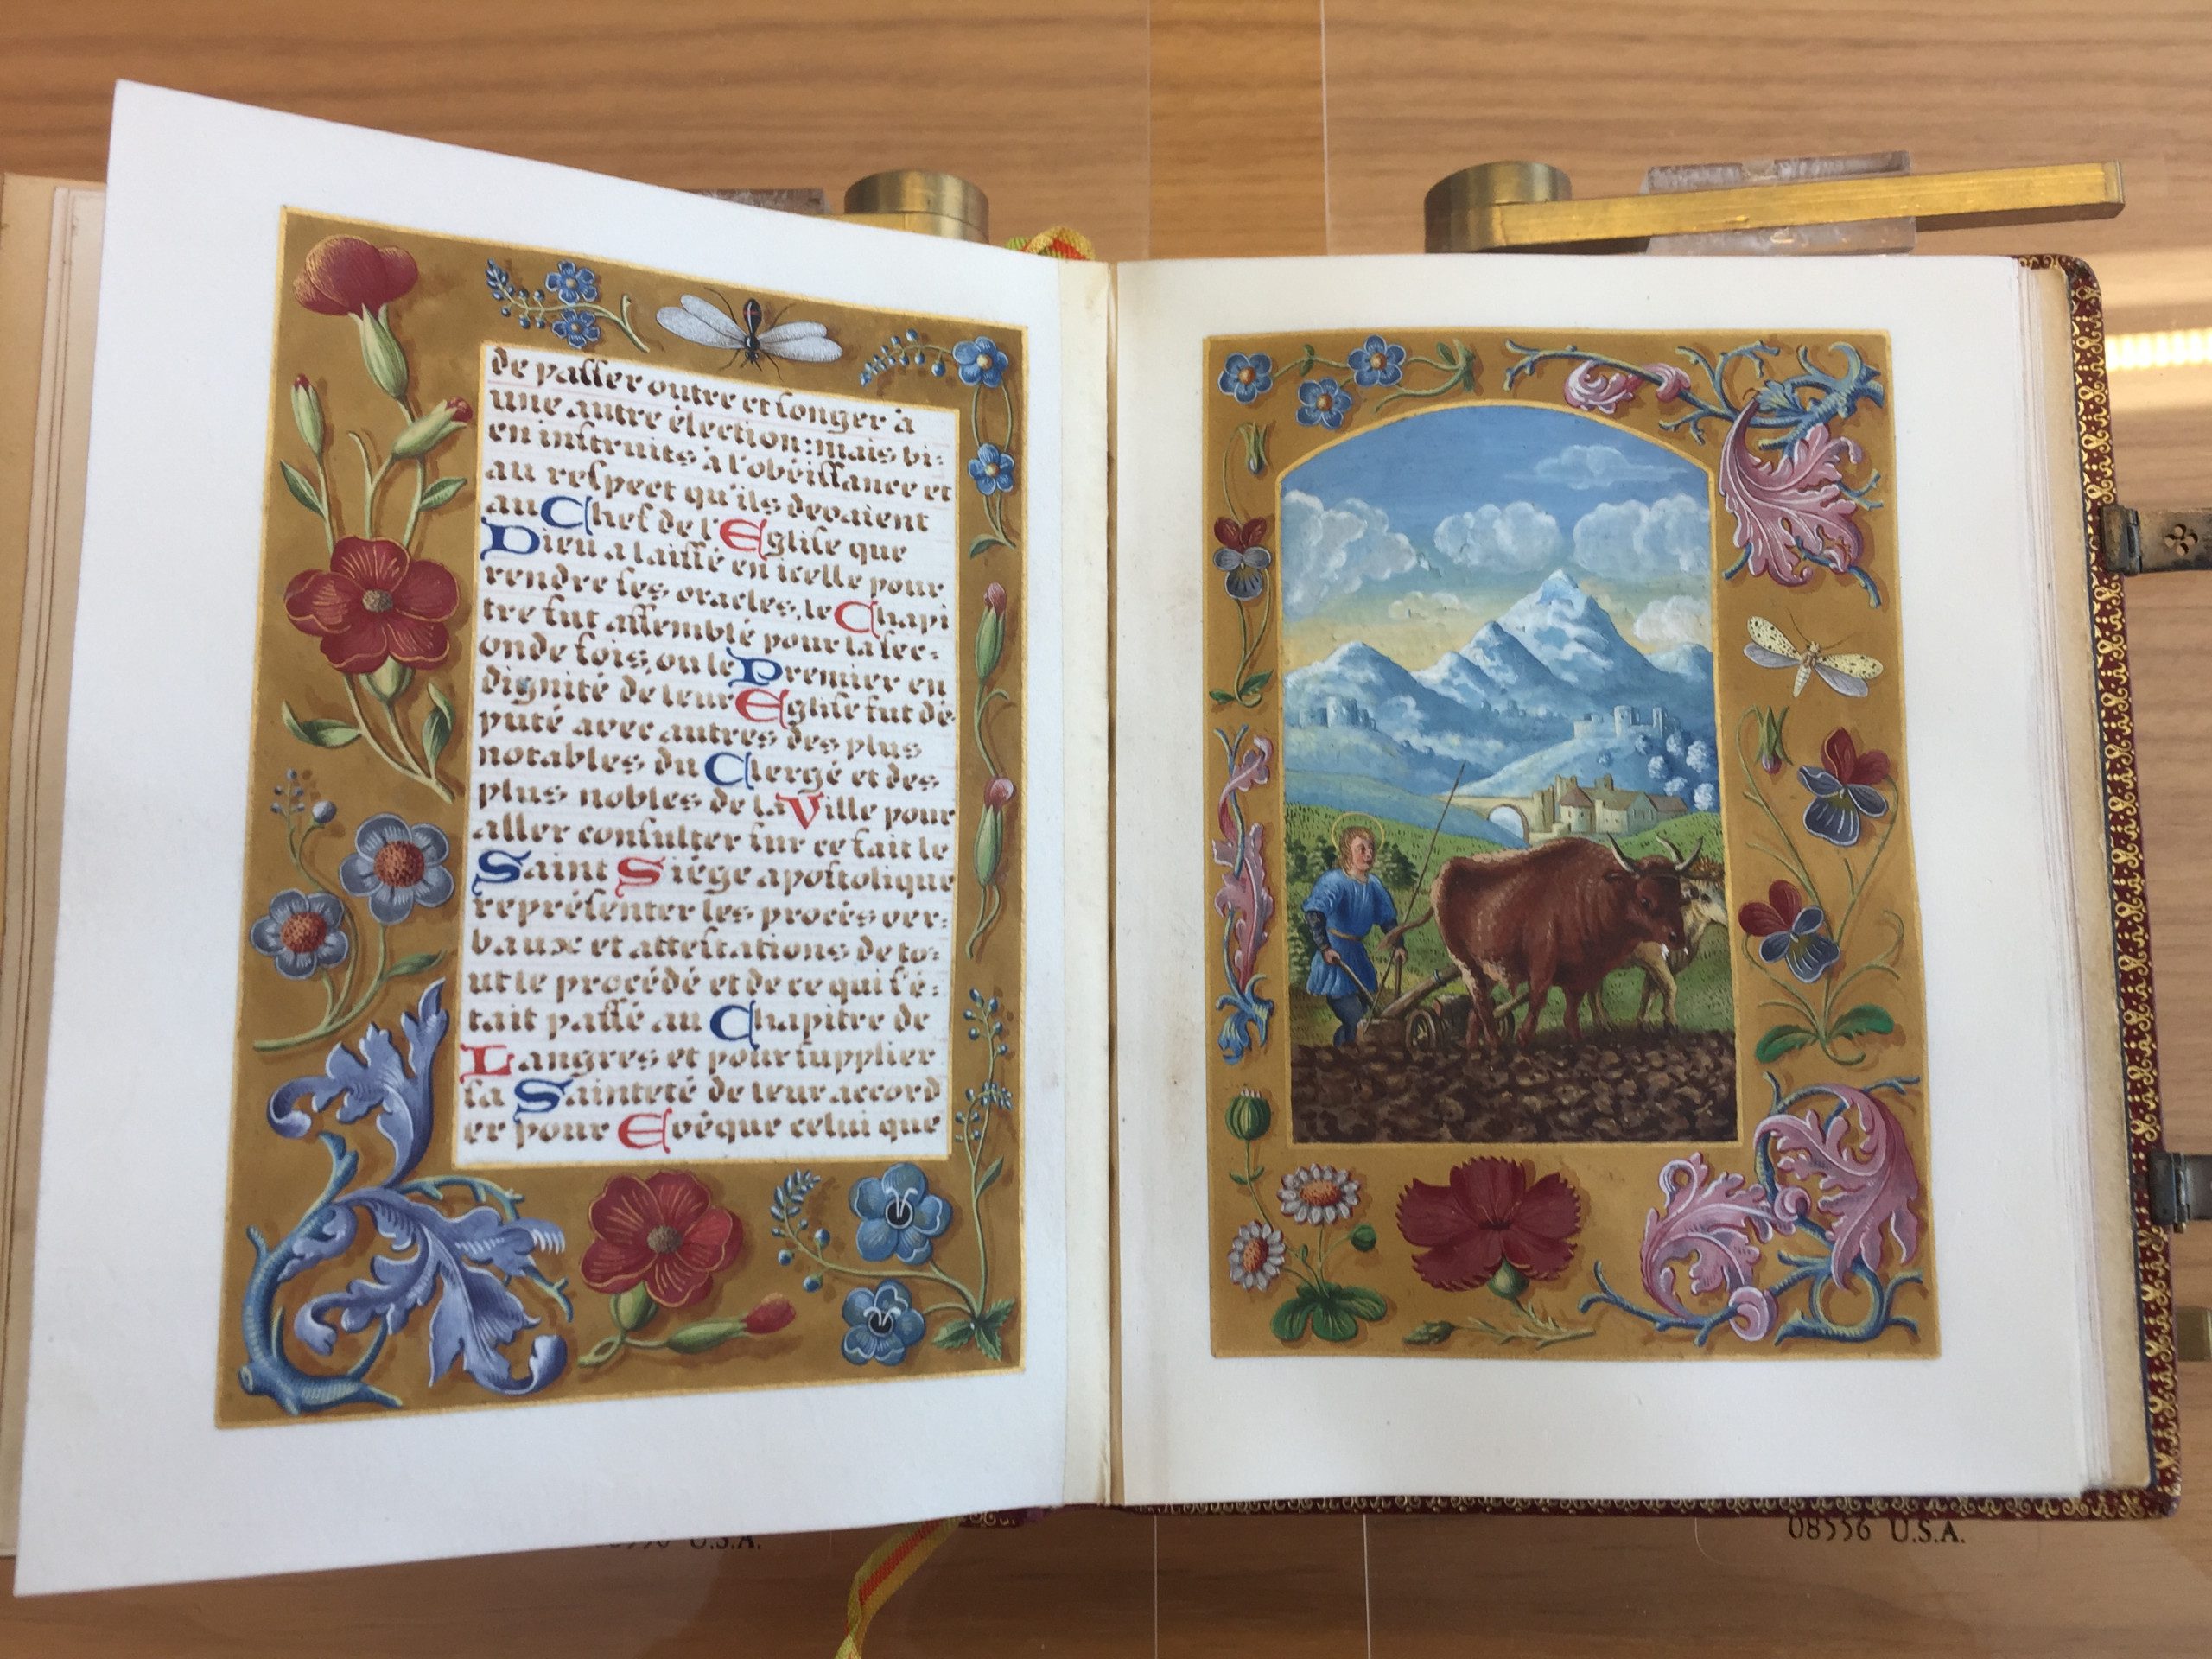 de passer outre et songer à
une autre élection: mais bi-
en instruits à l'obéissance et
au respect qu'ils devaient
au Chef de l'Eglise que
Dieu a laissé en icelle pour
rendre ses oracles, le Chapi
tre fut assemblé pour la sec-
onde fois, ou le Premier en
dignité de leur Eglise fut dé-
puté avec autres des plus
notables du Clergé et des
plus nobles de la Ville pour
aller consulter sur ce fait le
Saint Siége apostolique
représenter les procès ver-
baux et attestations de to-
ut le procédé et de ce qui s'é-
tait passé au Chapitre de
Langres et pour supplier
sa Sainteté de leur accord
er pour Evêque celui que
U.S.A.
08556 U.S.A.